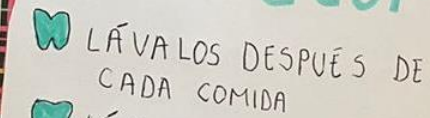 LÁVALOS DESPUÉS DE
CADA COMIDA